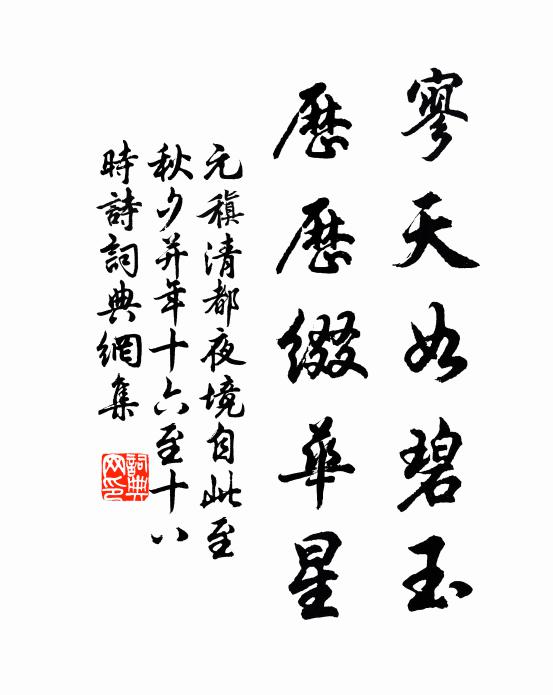 寥天如碧玉
歷歷綴華星
元稹清都夜境自此至
秋夕并年十六至十八
時詩詞典網集
詞典
网印